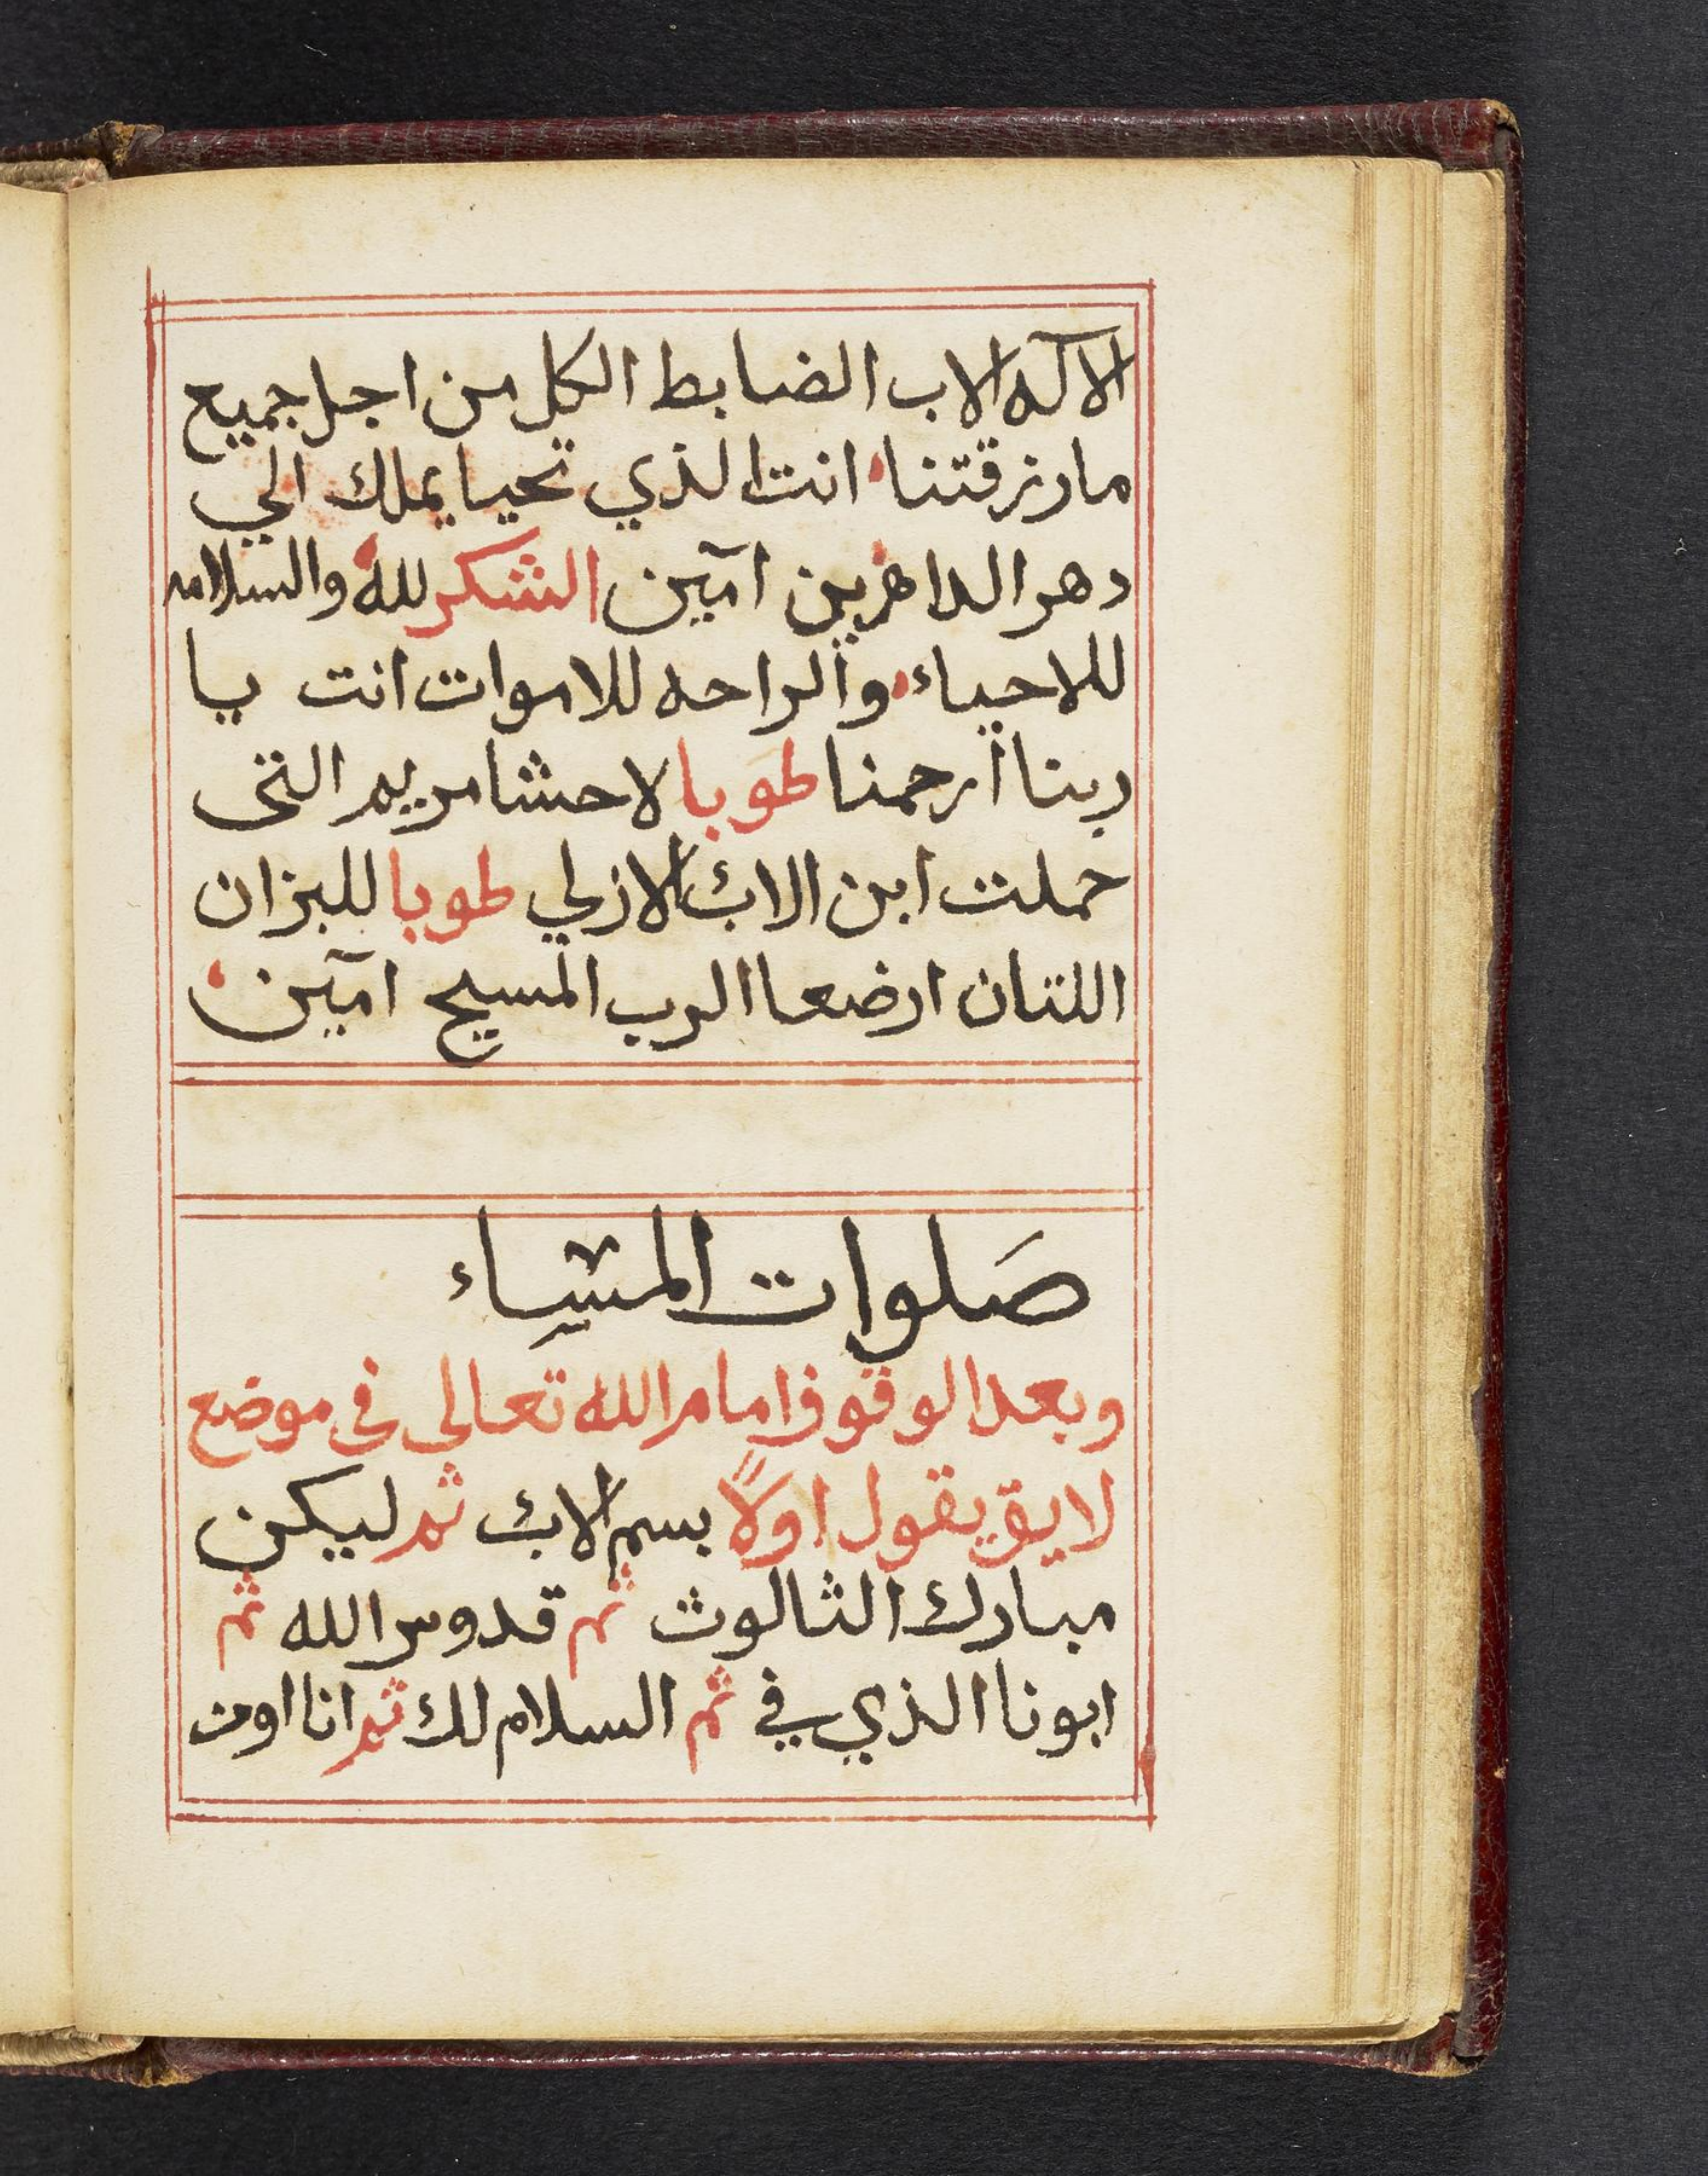 الاله الاب الضابط الكل من اجل جميع
ما رزقتنا انت الذي تحيا يملك الي
دهر الداهرين آمين الشكر لله والسلامه
للاحياء والراحه للاموات انت يا
ربنا ارحمنا طوبا لاحشا مريم التى
حملت ابن الاب الازلي طوبا للبزان
اللتان ارضعا الرب المسيح آمين
صلوات المساء
وبعد الوقوف امام الله تعالى فى موضع
لايق يقول اولاً بسم الاب ثم ليكن
مبارك الثالوث ثم قدوس الله ثم
ابونا الذي في ثم السلام لك ثم انا اومن